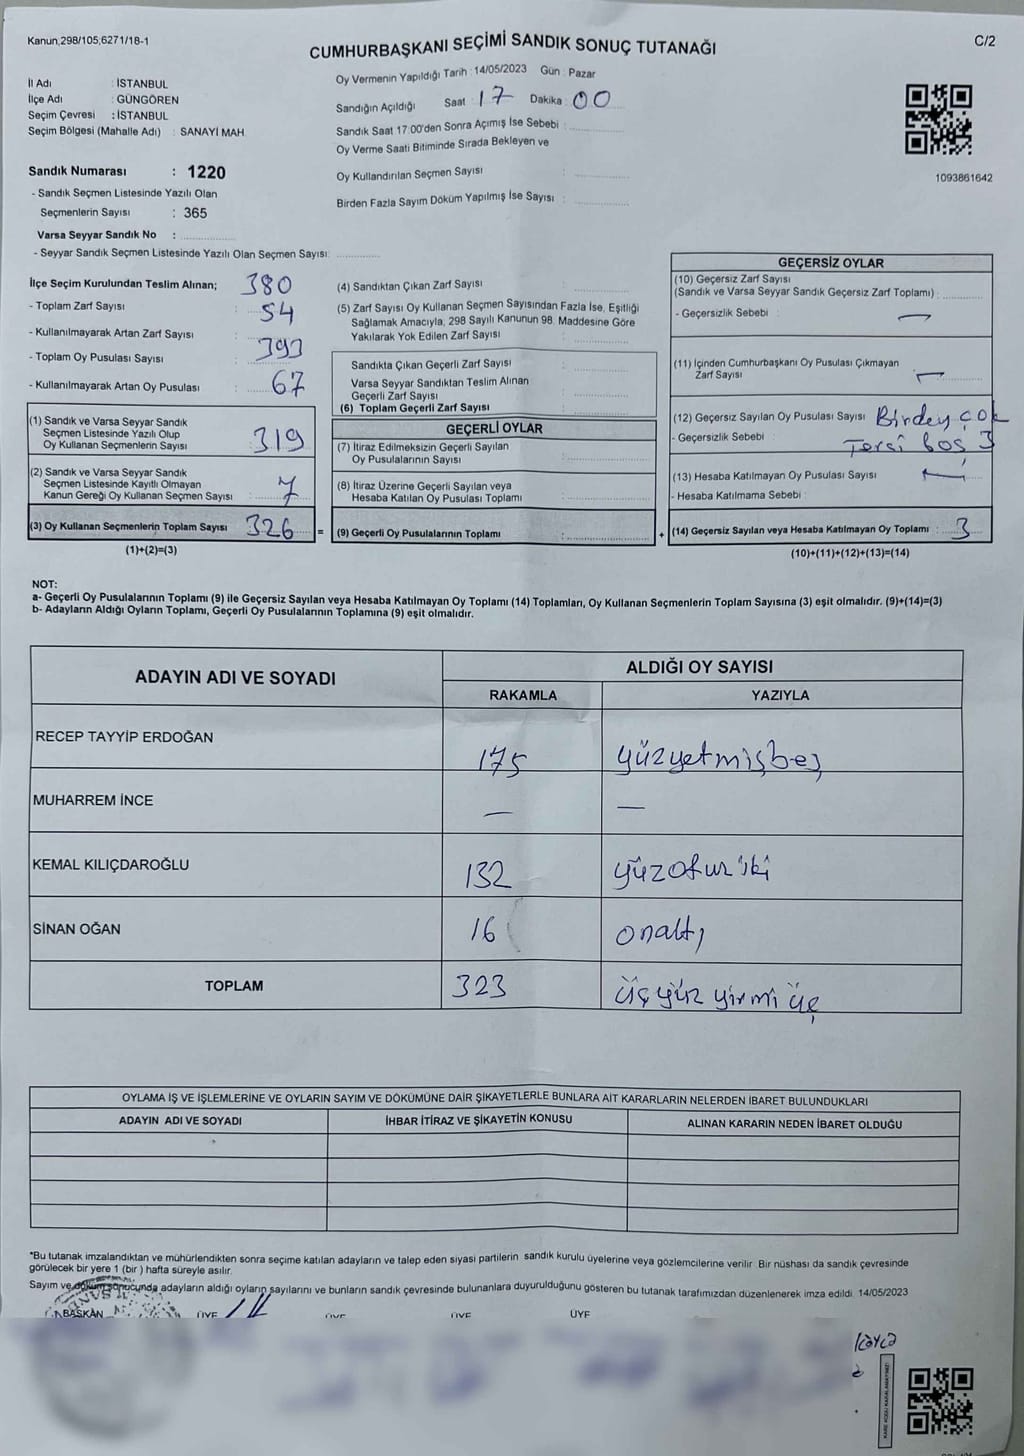 Kanun,298/105,6271/18-1
C/2
CUMHURBAŞKANI SEÇİMİ SANDIK SONUÇ TUTANAĞI
İl Adı : İSTANBUL
İlçe Adı : GÜNGÖREN
Seçim Çevresi : İSTANBUL
Seçim Bölgesi (Mahalle Adı) : SANAYİ MAH.
Sandık Numarası : 1220
- Sandık Seçmen Listesinde Yazılı Olan
Seçmenlerin Sayısı : 365
Varsa Seyyar Sandık No :
- Seyyar Sandık Seçmen Listesinde Yazılı Olan Seçmen Sayısı:
Oy Vermenin Yapıldığı Tarih : 14/05/2023 Gün : Pazar
Sandığın Açıldığı Saat : 17 Dakika : 00
Sandık Saat 17:00'den Sonra Açımış İse Sebebi :
Oy Verme Saati Bitiminde Sırada Bekleyen ve
Oy Kullandırılan Seçmen Sayısı :
Birden Fazla Sayım Döküm Yapılmış İse Sayısı :
1093861642
İlçe Seçim Kurulundan Teslim Alınan; 380
- Toplam Zarf Sayısı : 54
- Kullanılmayarak Artan Zarf Sayısı :
- Toplam Oy Pusulası Sayısı : 393
- Kullanılmayarak Artan Oy Pusulası : 67
(1) Sandık ve Varsa Seyyar Sandık
Seçmen Listesinde Yazılı Olup
Oy Kullanan Seçmenlerin Sayısı : 319
(2) Sandık ve Varsa Seyyar Sandık
Seçmen Listesinde Kayıtlı Olmayan
Kanun Gereği Oy Kullanan Seçmen Sayısı : 7
(3) Oy Kullanan Seçmenlerin Toplam Sayısı : 326 =
(1)+(2)=(3)
(4) Sandıktan Çıkan Zarf Sayısı :
(5) Zarf Sayısı Oy Kullanan Seçmen Sayısından Fazla İse, Eşitliği
Sağlamak Amacıyla, 298 Sayılı Kanunun 98. Maddesine Göre
Yakılarak Yok Edilen Zarf Sayısı :
Sandıkta Çıkan Geçerli Zarf Sayısı :
Varsa Seyyar Sandıktan Teslim Alınan
Geçerli Zarf Sayısı :
(6) Toplam Geçerli Zarf Sayısı :
GEÇERLİ OYLAR
(7) İtiraz Edilmeksizin Geçerli Sayılan
Oy Pusulalarının Sayısı :
(8) İtiraz Üzerine Geçerli Sayılan veya
Hesaba Katılan Oy Pusulası Toplamı :
(9) Geçerli Oy Pusulalarının Toplamı : +
GEÇERSİZ OYLAR
(10) Geçersiz Zarf Sayısı
(Sandık ve Varsa Seyyar Sandık Geçersiz Zarf Toplamı) :
- Geçersizlik Sebebi : —
(11) İçinden Cumhurbaşkanı Oy Pusulası Çıkmayan
Zarf Sayısı : —
(12) Geçersiz Sayılan Oy Pusulası Sayısı : Birdey çok
- Geçersizlik Sebebi : Tersi boş 3
(13) Hesaba Katılmayan Oy Pusulası Sayısı : —
- Hesaba Katılmama Sebebi :
(14) Geçersiz Sayılan veya Hesaba Katılmayan Oy Toplamı : 3
(10)+(11)+(12)+(13)=(14)
NOT:
a- Geçerli Oy Pusulalarının Toplamı (9) ile Geçersiz Sayılan veya Hesaba Katılmayan Oy Toplamı (14) Toplamları, Oy Kullanan Seçmenlerin Toplam Sayısına (3) eşit olmalıdır. (9)+(14)=(3)
b- Adayların Aldığı Oyların Toplamı, Geçerli Oy Pusulalarının Toplamına (9) eşit olmalıdır.
ADAYIN ADI VE SOYADI ALDIĞI OY SAYISI
RAKAMLA YAZIYLA
RECEP TAYYİP ERDOĞAN 175 yüzyetmişbeş
MUHARREM İNCE — —
KEMAL KILIÇDAROĞLU 132 yüzotuz iki
SİNAN OĞAN 16 onaltı
TOPLAM 323 üçyüz yirmi üç
OYLAMA İŞ VE İŞLEMLERİNE VE OYLARIN SAYIM VE DÖKÜMÜNE DAİR ŞİKAYETLERLE BUNLARA AİT KARARLARIN NELERDEN İBARET BULUNDUKLARI
ADAYIN ADI VE SOYADI İHBAR İTİRAZ VE ŞİKAYETİN KONUSU ALINAN KARARIN NEDEN İBARET OLDUĞU
*Bu tutanak imzalandıktan ve mühürlendikten sonra seçime katılan adayların ve talep eden siyasi partilerin sandık kurulu üyelerine veya gözlemcilerine verilir. Bir nüshası da sandık çevresinde
görülecek bir yere 1 (bir) hafta süreyle asılır.
Sayım ve döküm sonucunda adayların aldığı oyların sayılarını ve bunların sandık çevresinde bulunanlara duyurulduğunu gösteren bu tutanak tarafımızdan düzenlenerek imza edildi. 14/05/2023
BAŞKAN ÜYE ÜYE ÜYE ÜYE